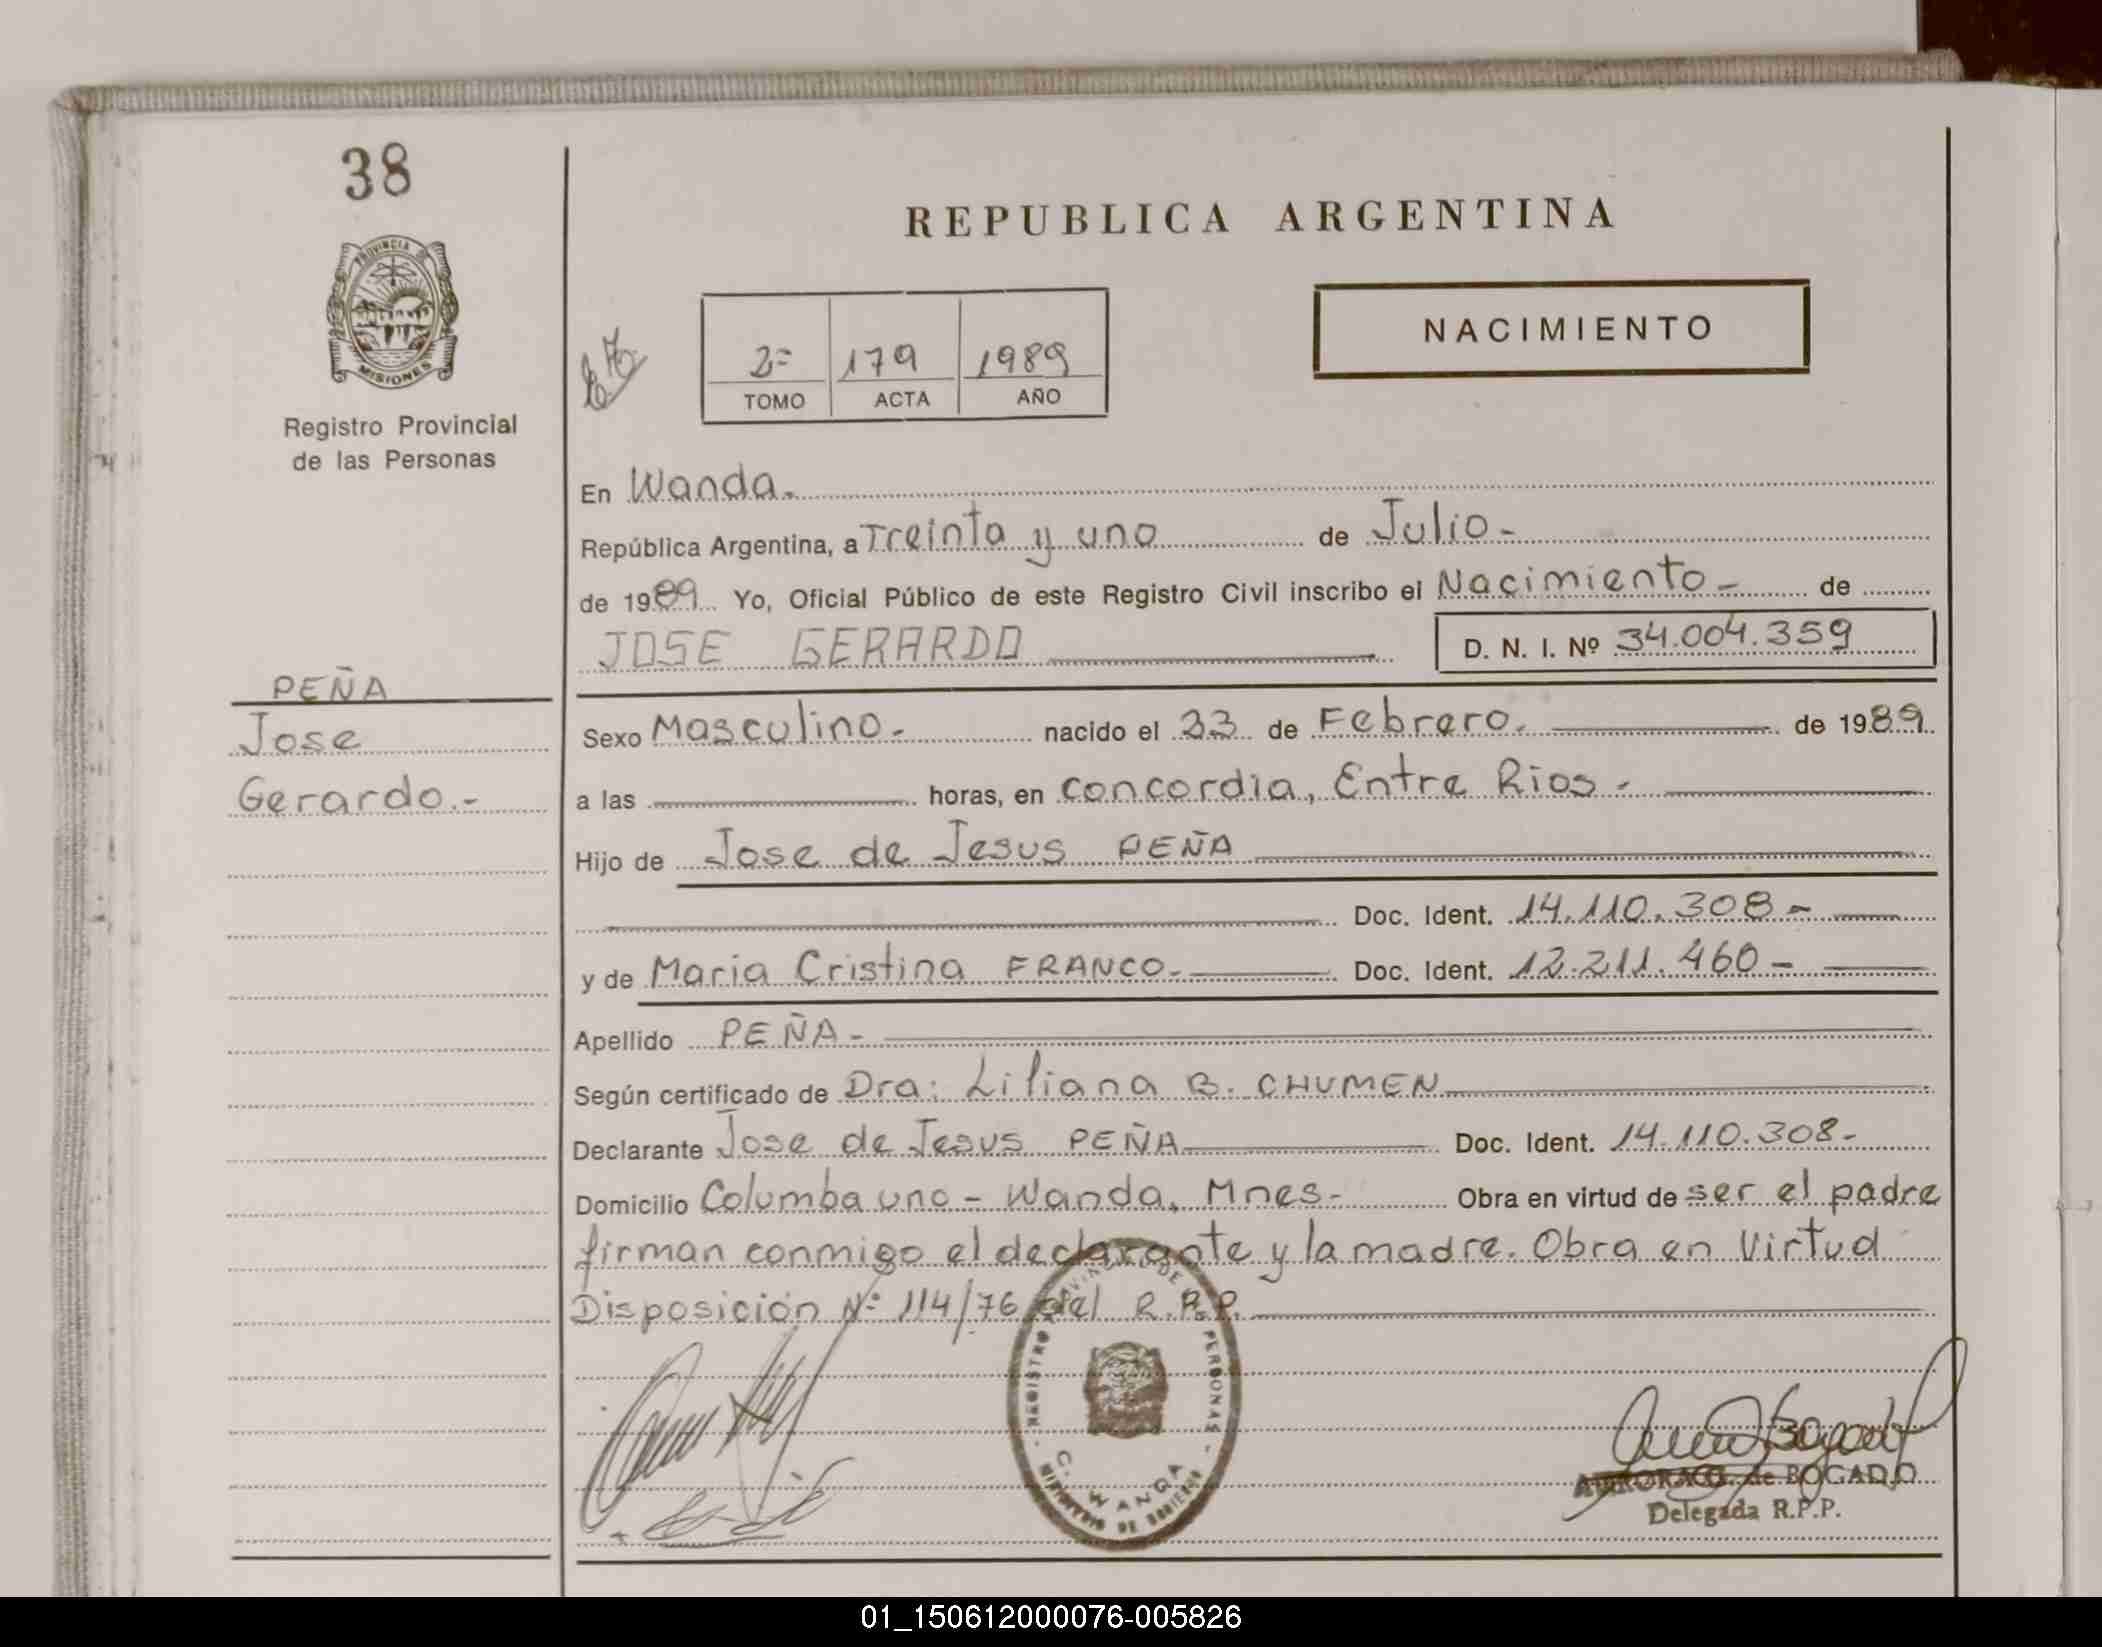 38
PROVINCIA DE
MISIONES
Registro Provincial
de las Personas
PEÑA
Jose
Gerardo.-
REPUBLICA ARGENTINA
2= 179 1989
TOMO ACTA AÑO
NACIMIENTO
En Wanda.
República Argentina, a Treinta y uno de Julio-
de 1989 Yo, Oficial Público de este Registro Civil inscribo el Nacimiento- de
JOSE GERARDO D. N. I. Nº 34.004.359
Sexo Masculino.- nacido el 23 de Febrero. de 1989
a las horas, en Concordia, Entre Rios-
Hijo de Jose de Jesus PEÑA
Doc. Ident. 14.110.308-
y de Maria Cristina FRANCO.- Doc. Ident. 12.211.460-
Apellido PEÑA-
Según certificado de Dra: Liliana B. CHUMEN
Declarante Jose de Jesus PEÑA Doc. Ident. 14.110.308-
Domicilio Columba uno - Wanda, Mnes- Obra en virtud de ser el padre
firman conmigo el declarante y la madre. Obra en Virtud
Disposición Nº 114/76 del R.P.P.
REGISTRO PROVINCIAL DE LAS PERSONAS
C. WANDA
MINISTERIO DE GOBIERNO
de BOGADO
Delegada R.P.P.
01_150612000076-005826